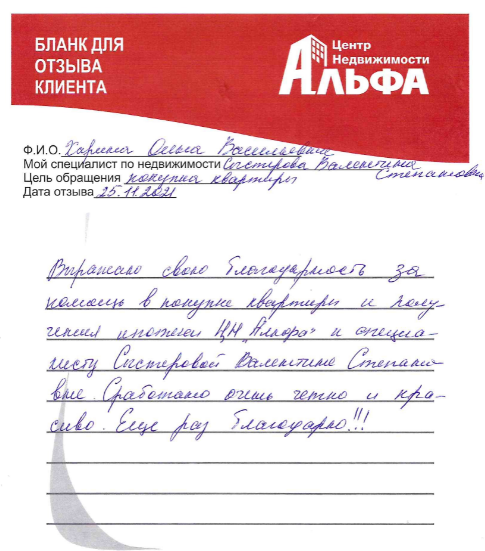 БЛАНК ДЛЯ
ОТЗЫВА
КЛИЕНТА
Центр
Недвижимости
АЛЬФА
Ф.И.О. Харина Ольга Васильевна
Мой специалист по недвижимости Систерова Валентина
Цель обращения покупка квартиры Степановна
Дата отзыва 25.11.2021
Выражаю свою благодарность за
помощь в покупке квартиры и полу-
чения ипотеки ЦН „Альфа" и специа-
листу Систеровой Валентине Степано
вне. Сработано очень четко и кра-
сиво. Еще раз благодарю!!!